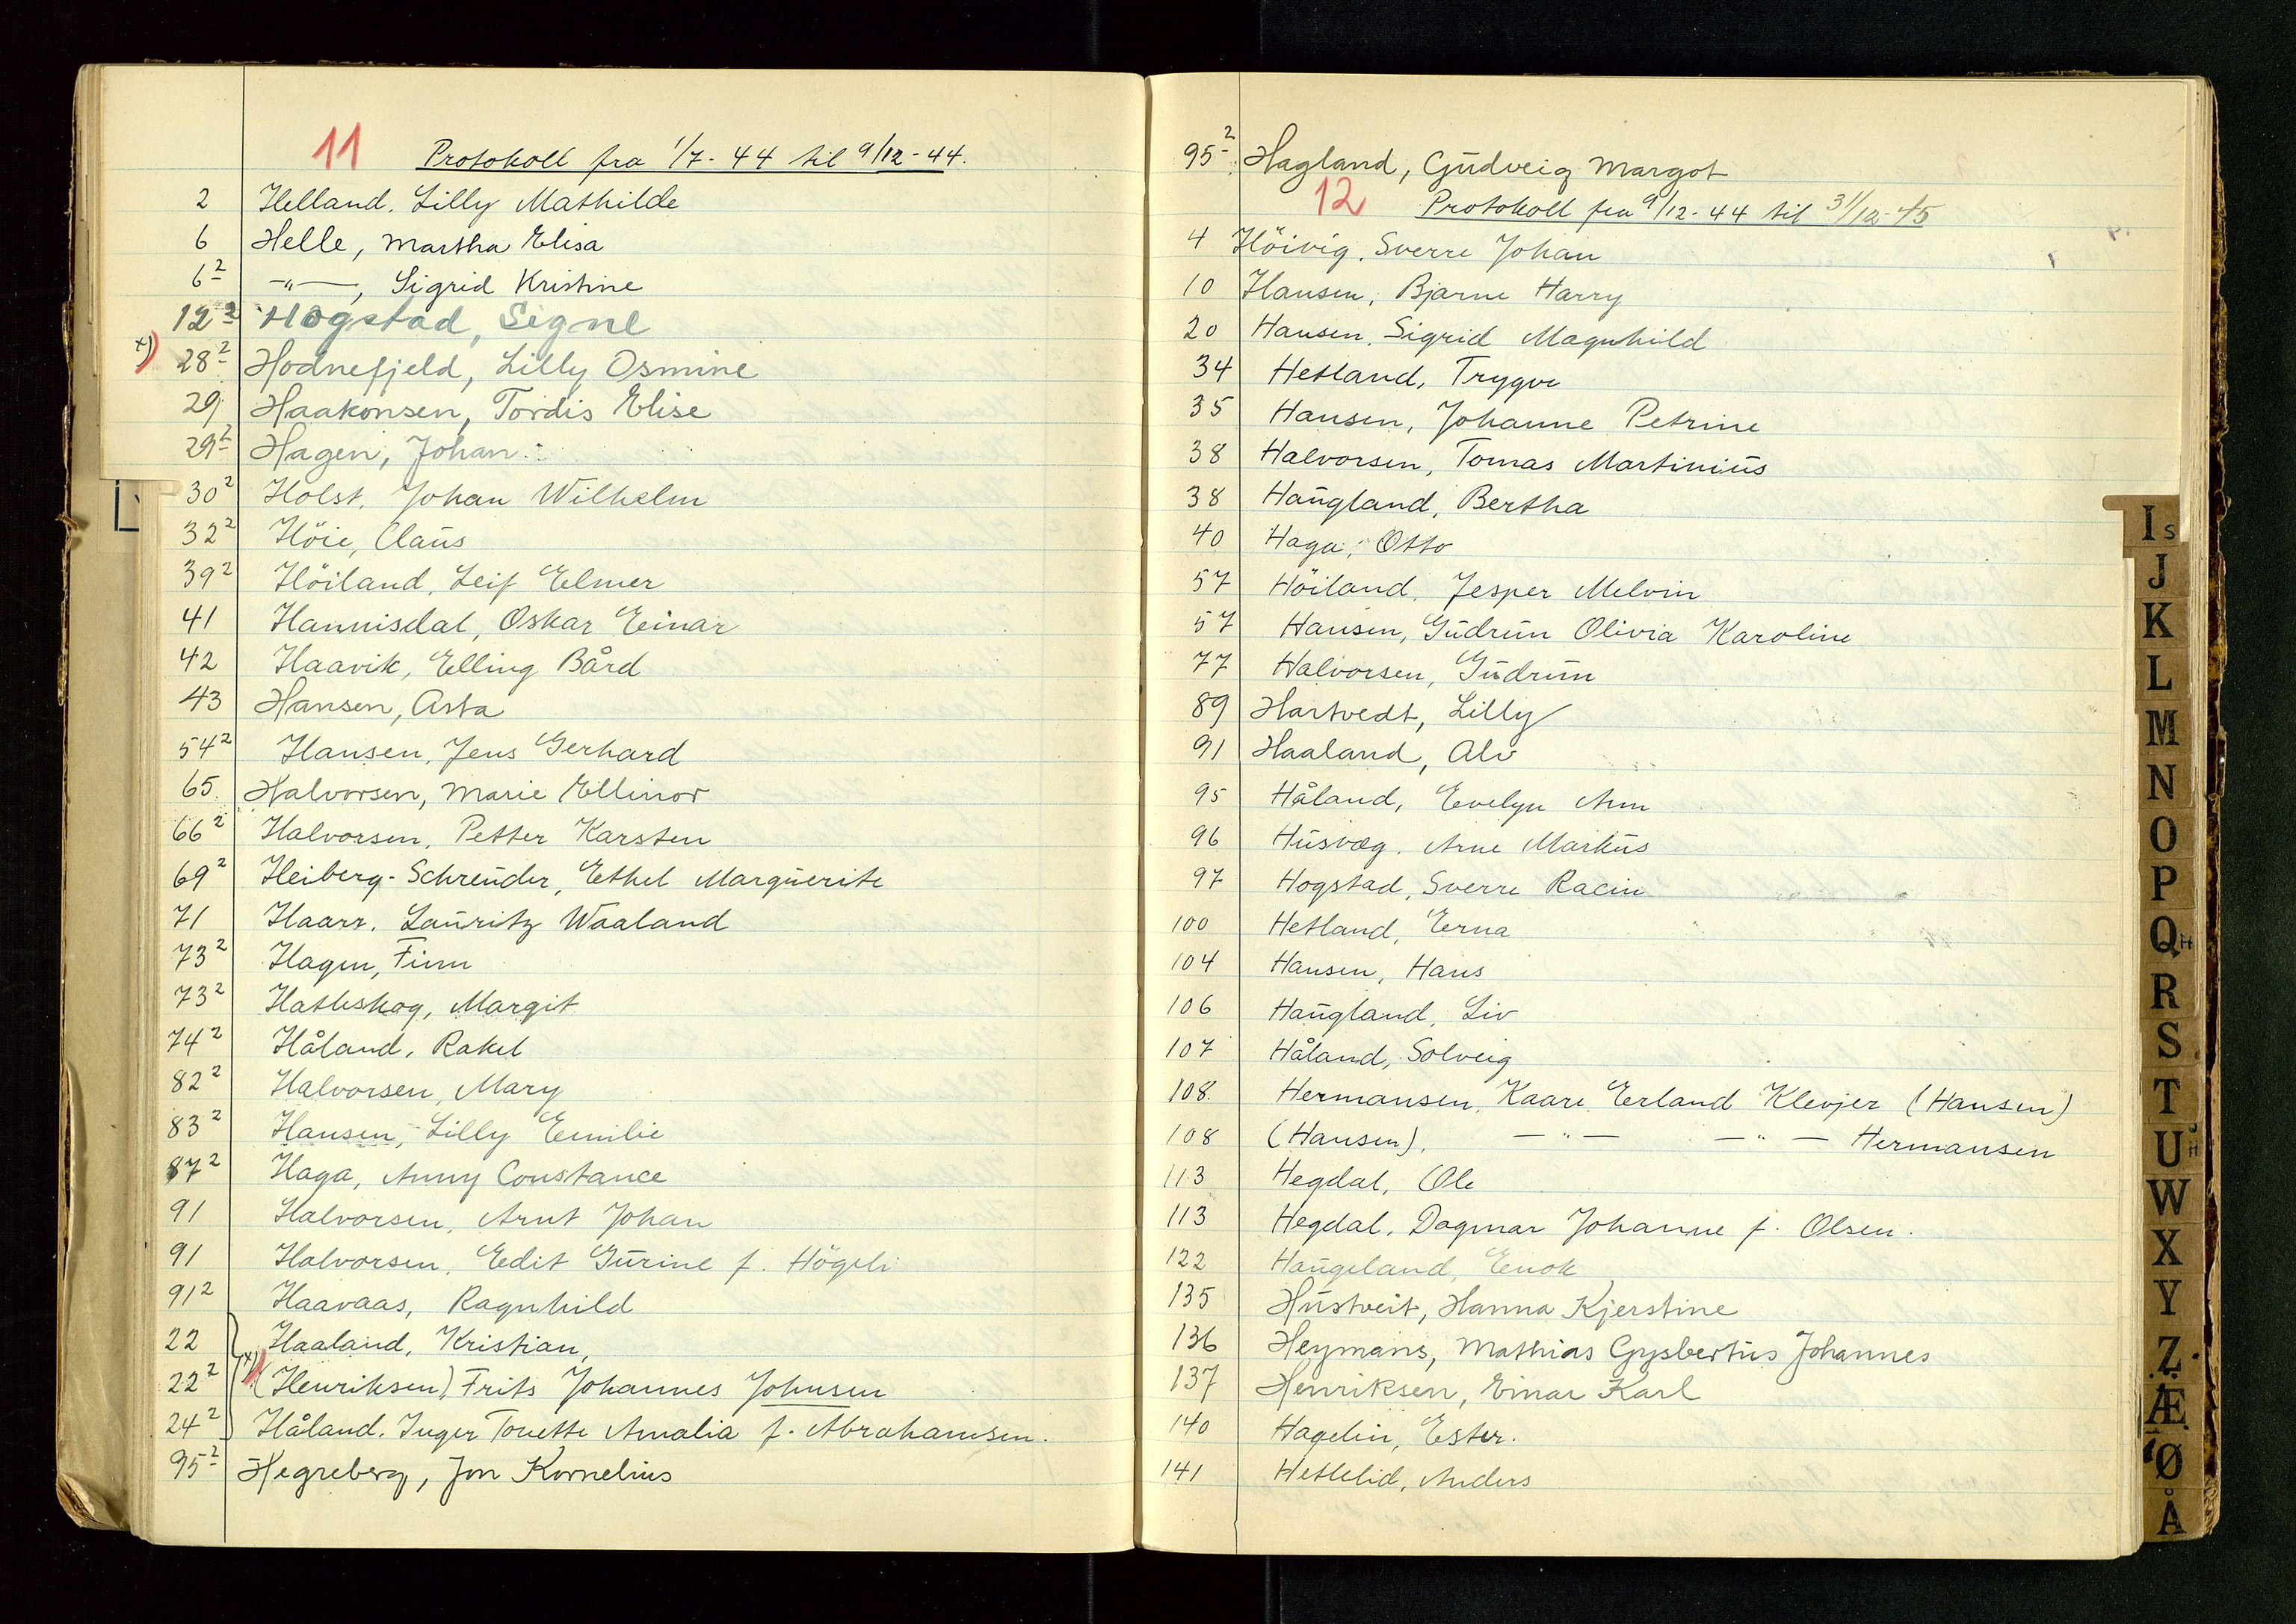 11 Protokoll fra 1/7-44 til 9/12-44.
2 Helland, Lilly Mathilde
6 Helle, Martha Elisa
6² —"—, Sigrid Kristine
12² Hogstad, Signe
x) 28² Hodnefjeld, Lilly Osmine
29 Haakonsen, Tordis Elise
29² Hagen, Johan
30² Holst, Johan Wilhelm
32² Höie, Claus
39² Höiland, Leif Elmer
41 Hannisdal, Oskar Einar
42 Haavik, Elling Bård
43 Hansen, Asta
54² Hansen, Jens Gerhard
65 Halvorsen, Marie Ellinor
66² Halvorsen, Petter Karsten
69² Heiberg-Schreuder, Ethel Marguerite
71 Haarr, Lauritz Waaland
73² Hagen, Finn
73² Hatleskog, Margit
74² Håland, Rakel
82² Halvorsen, Mary
83² Hansen, Lilly Emilie
87² Haga, Anny Constance
91 Halvorsen, Arnt Johan
91 Halvorsen, Edit Gurine f. Högeli
91² Haavaas, Ragnhild
22 Haaland, Kristian,
22² (x) (Henriksen) Frits Johannes Johnsen
24² Håland, Inger Tonette Amalia f. Abrahamsen.
95² Hegreberg, Jon Kornelius
95² Hagland, Gudveig Margot
12 Protokoll fra 9/12-44 til 31/12-45
4 Höivig, Sverre Johan
10 Hansen, Bjarne Harry
20 Hansen, Sigrid Magnhild
34 Hetland, Trygve
35 Hansen, Johanne Petrine
38 Halvorsen, Tomas Martinius
38 Haugland, Bertha
40 Haga, Otto
57 Höiland, Jesper Melvin
57 Hansen, Gudrun Olivia Karoline
77 Halvorsen, Gudrun
89 Hartvedt, Lilly
91 Haaland, Alv
95 Håland, Evelyn Ann
96 Husvæg, Arne Markus
97 Hogstad, Sverre Racin
100 Hetland, Erna
104 Hansen, Hans
106 Haugland, Liv
107 Håland, Solveig
108. Hermansen, Kaare Erland Klevjer (Hansen)
108 (Hansen), —"— —"— Hermansen
113 Hegdal, Ole
113 Hegdal, Dagmar Johanne f. Olsen.
122 Haugeland, Enok
135 Hustveit, Hanna Kjerstine
136 Heymans, Mathias Gysbertus Johannes
137 Henriksen, Einar Karl
140 Hagelin, Ester.
141 Hetlelid, Anders
Is
J
K
L
M
N
O
P
QH
R
S
T
U
W
X
Y
Z
Æ
Ø
Å